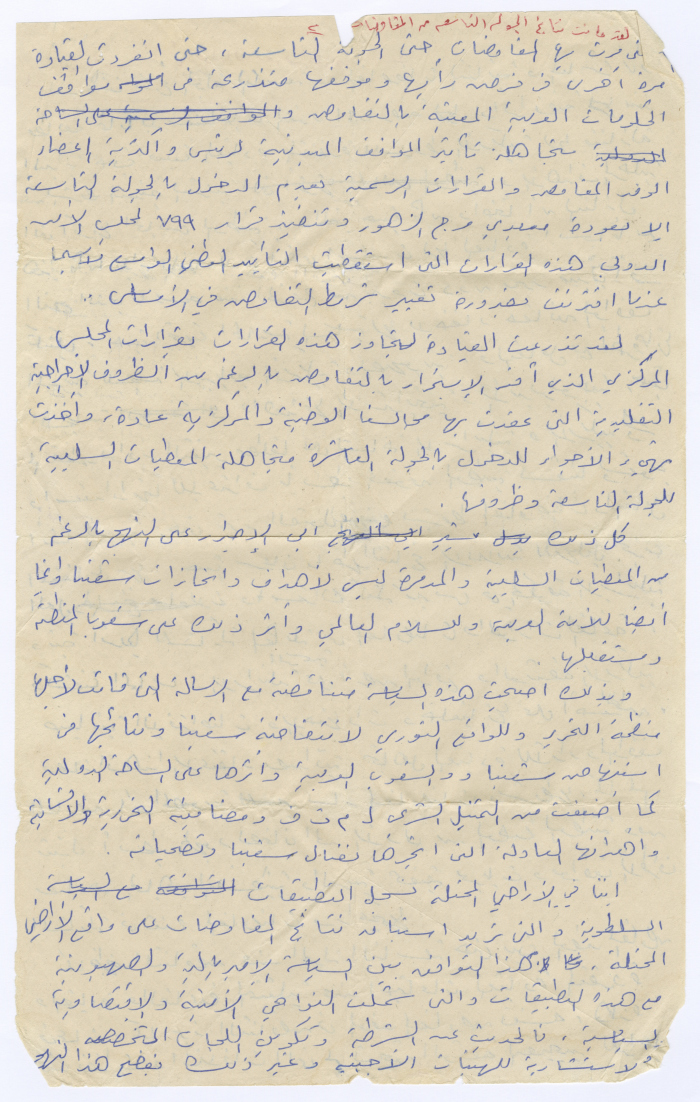 لقد كانت نتائج الجولة التاسعة من المفاوضات ٢
مرت بها المفاوضات حتى الجولة التاسعة، حتى انفردت القيادة
مرة أخرى في فرض رأيها وموقفها متذرعة في مواقف
الحكومات العربية المعنية بالتفاوض والمواقف الرسمية على الساحة
الدولية متجاهلة تأثير المواقف المبدئية لرئيس وأكثرية اعضاء
الوفد المفاوض والقرارات الرسمية بعدم الدخول بالجولة التاسعة
إلا بعودة مبعدي مرج الزهور وتنفيذ قرار ٧٩٩ لمجلس الأمن
الدولي هذه القرارات التي استقطبت التأييد الوطني الواسع ولاسيما
عندما اقترنت بضرورة تغيير شروط التفاوض في الأساس ..
لقد تذرعت القيادة لتجاوز هذه القرارات بقرارات المجلس
المركزي الذي أقر الإستمرار بالتفاوض بالرغم من الظروف الإحراجية
التقليدية التي عقدت بها مجالسنا الوطنية والمركزية عادة، وأخذت
تهيء الأجواء للدخول بالجولة العاشرة متجاهلة المعطيات السلبية
للجولة التاسعة وظروفها .
كل ذلك يشير إلى الإصرار على النهج بالرغم
من المعطيات السلبية والمدمرة ليس لأهداف وانجازات شعبنا وإنما
أيضا للأمة العربية وللسلام العالمي وأثر ذلك على شعوب المنطقة
ومستقبلها .
وبذلك اصبحت هذه السياسة متناقضة مع الرسالة التي قامت لأجلها
منظمة التحرير وللواقع الثوري لانتفاضة شعبنا ونتائجها في
استنهاض شعبنا والشعوب العربية وأثرها على الساحة الدولية
كما أضعفت من التمثيل الشرعي ل م ت ف ومضامينه التحررية والإنسانية
وأهدافها العادلة التي انجزها نضال شعبنا وتضحياته .
اننا في الأراضي المحتلة نسجل التطبيقات المتوافقة مع السياسة
السلطوية والتي تريد استباق نتائج المفاوضات على واقع الأراضي
المحتلة، هذا التوافق بين السياسة الإمبريالية والصهيونية
مع هذه التطبيقات والتي شملت النواحي الأمنية والإقتصادية
والسياسية، فالحديث عن الشرطة وتكوين اللجان المتخصصة
والاستشارية للهيئات الأجنبية وغير ذلك يفضح هذا النهج